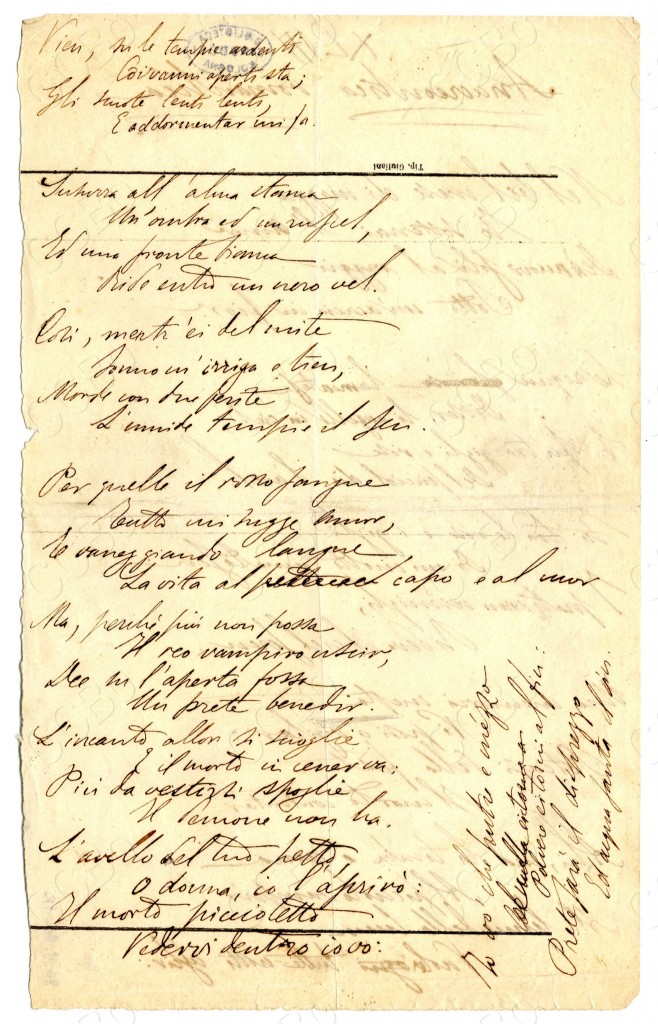 Vien, su le tempie ardenti
Co i vanni aperti sta;
Gli scuote lenti lenti,
E addormentar mi fa.
Tip. Giulioni
Susurra all'alma stanca
Un'ombra ed un ruscel,
Ed una fronte bianca
Ride entro un nero vel.
Così, mentr'ei del mite
Sonno m'irriga e tien,
Morde con due ferite
L'umide tempie il sen.
Per quelle il rosso sangue
Tutto mi sugge amor,
E vaneggiando langue
La vita al capo e al cuor
Ma, perché più non possa
Il reo vampiro uscir,
Dee in l'aperta fossa
Un prete benedir.
L'incanto allor si scioglie
E il morto in cener va:
Più da vestirsi spoglie
Il demone non ha.
L'avello del tuo petto,
O donna, io l'aprirò:
Il morto piccioletto
Vedervi dentro io vo':
Io vo' che putre e mézzo
Polvere ei torni al fin:
Prete sarà il disprezzo
Ed acqua santa il vin.